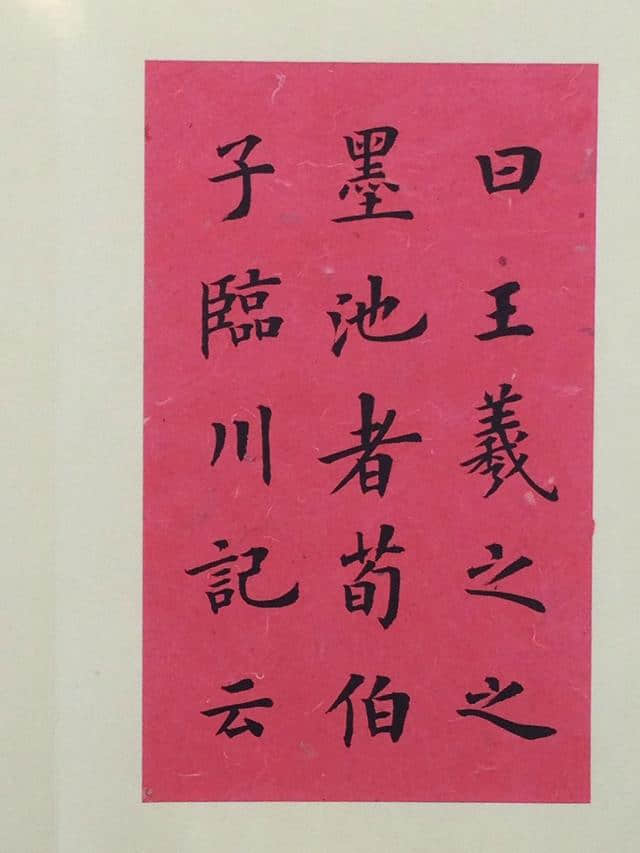 曰王羲之之
墨池者荀伯
子臨川記云